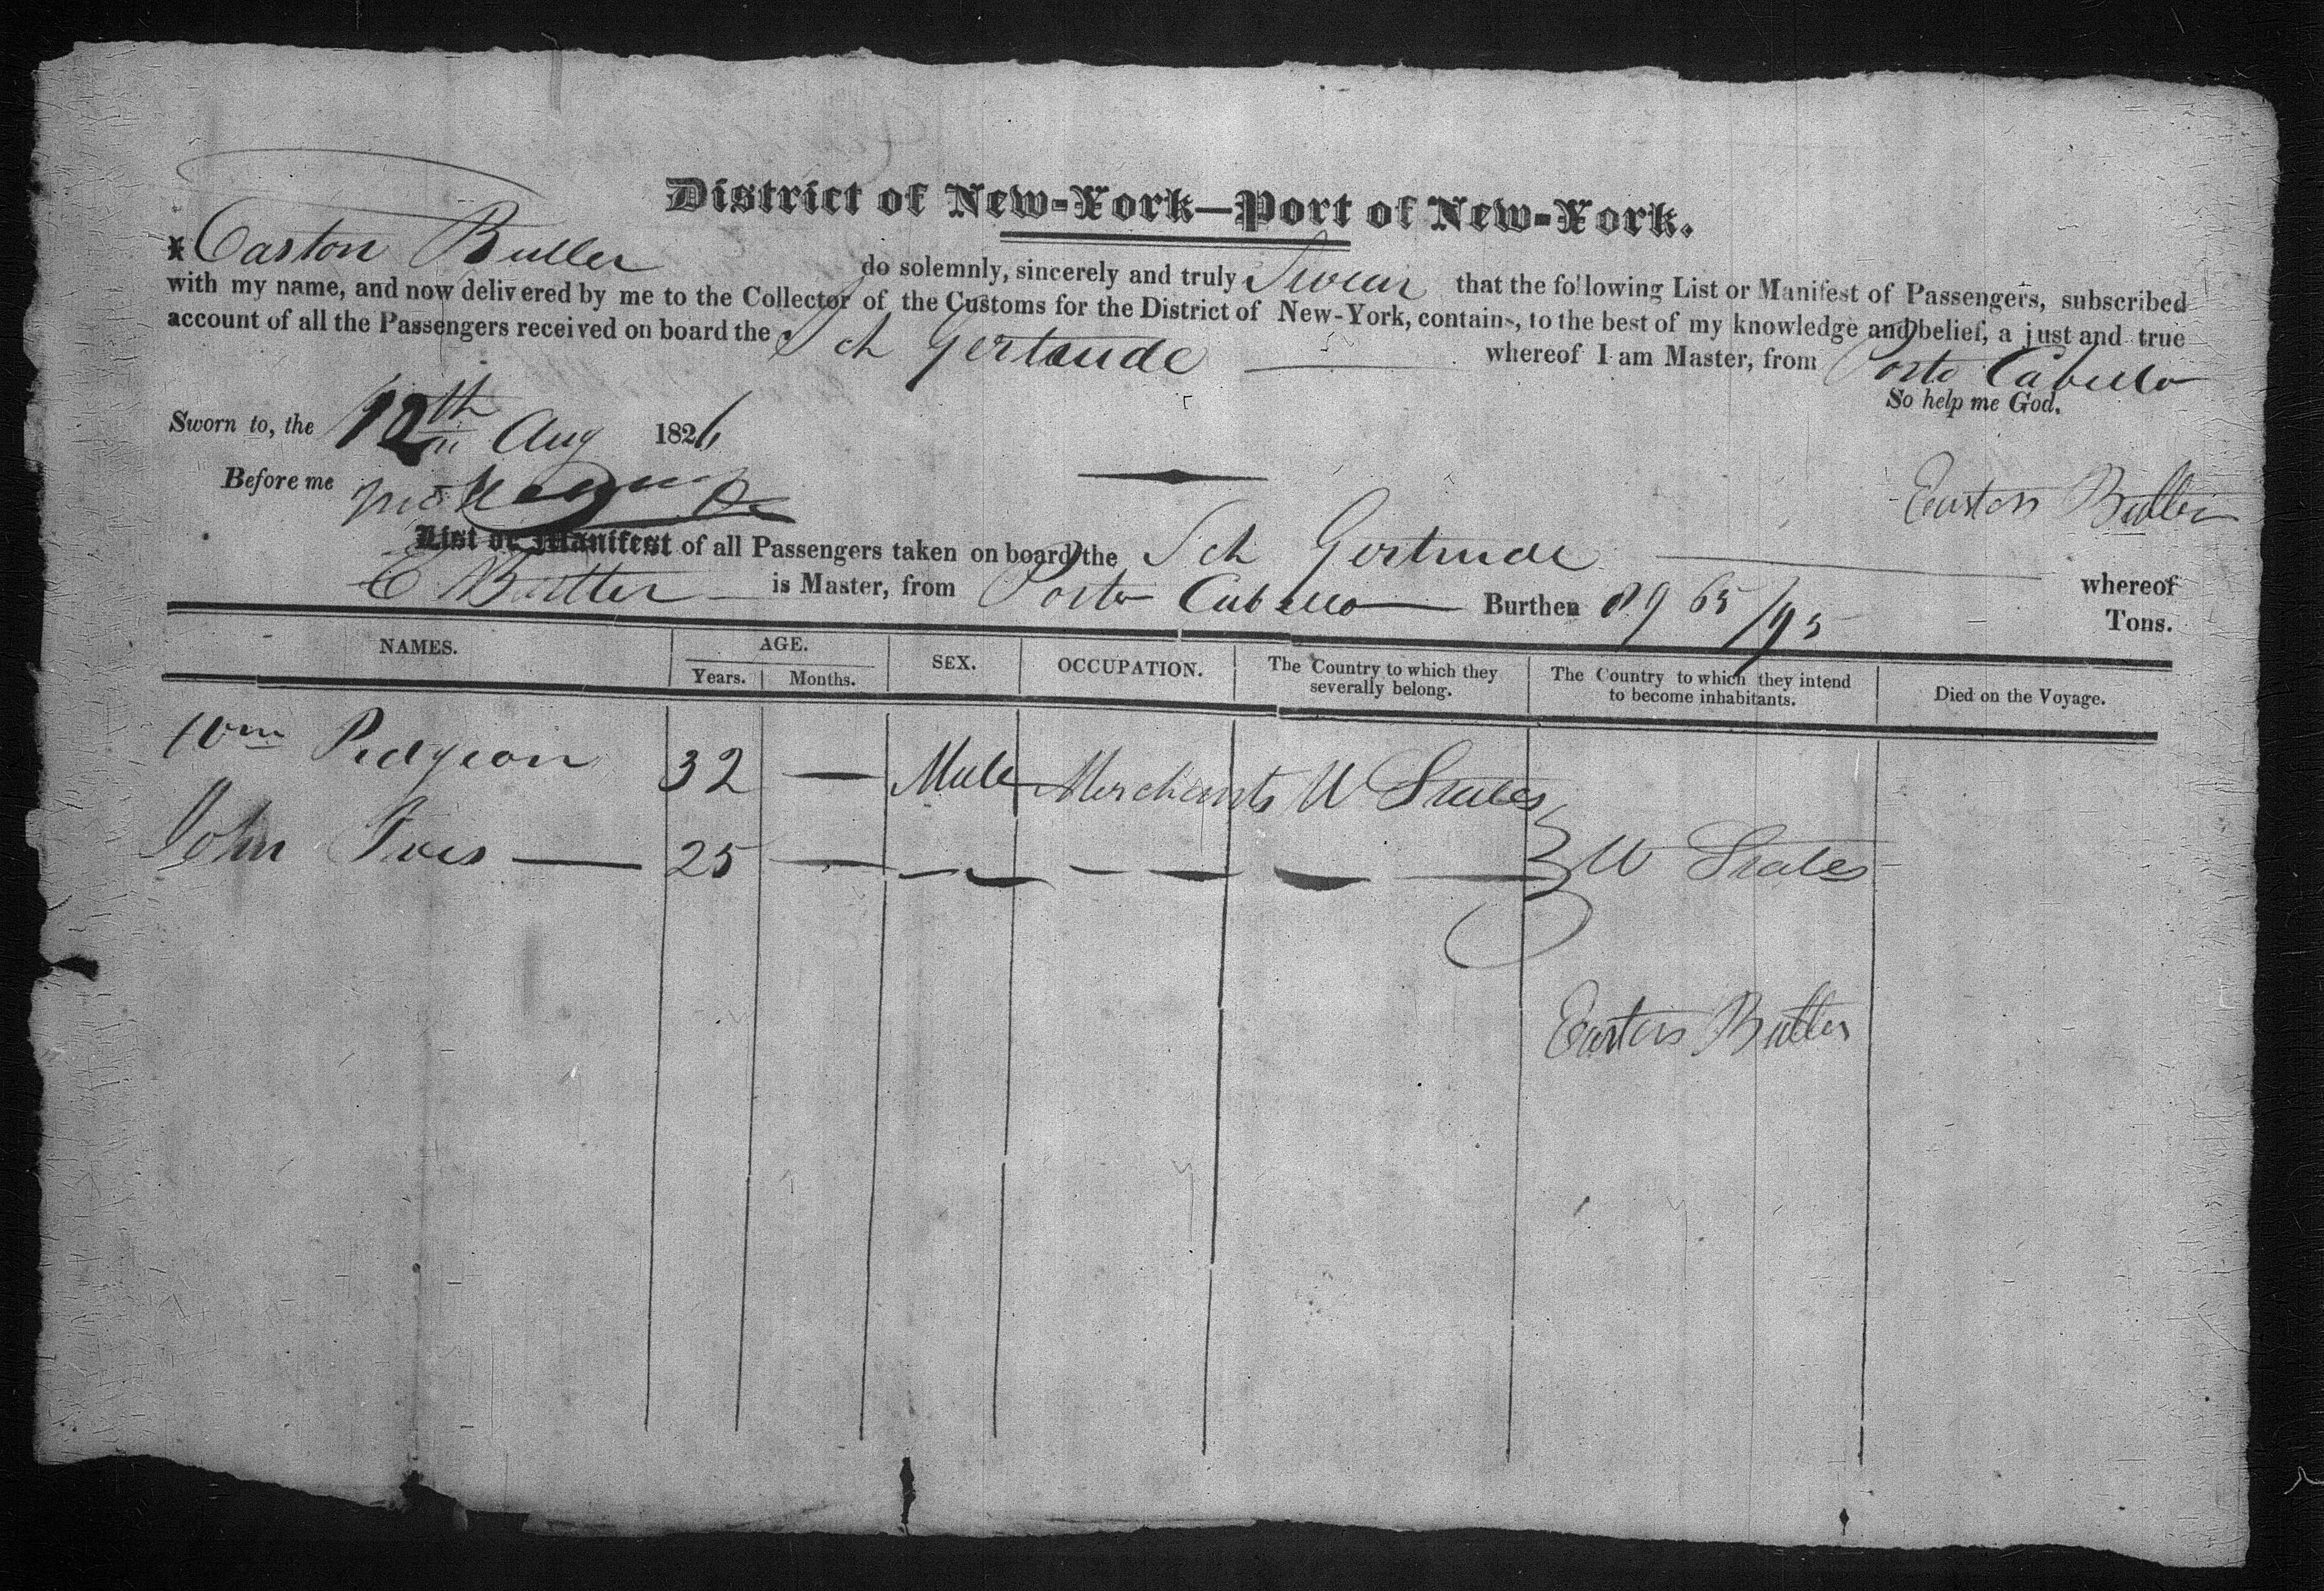 District of New-York—Port of New-York.
I Easton Butler do solemnly, sincerely and truly Swear that the following List or Manifest of Passengers, subscribed
with my name, and now delivered by me to the Collector of the Customs for the District of New-York, contains, to the best of my knowledge and belief, a just and true
account of all the Passengers received on board the Sch Gertrude whereof I am Master, from Porto Cabello
So help me God.
Sworn to, the 12th Aug 1826
Before me
Easton Butler
List or Manifest of all Passengers taken on board the Sch Gertrude whereof
E Butler is Master, from Porto Cabello Burthen 89 65/95 Tons.
NAMES. AGE. SEX. OCCUPATION. The Country to which they severally belong. The Country to which they intend to become inhabitants. Died on the Voyage.
Years. Months.
Wm Pidgeon 32 — Male Merchants U States
John Ives — 25 — — — — — — — U States
Easton Butler